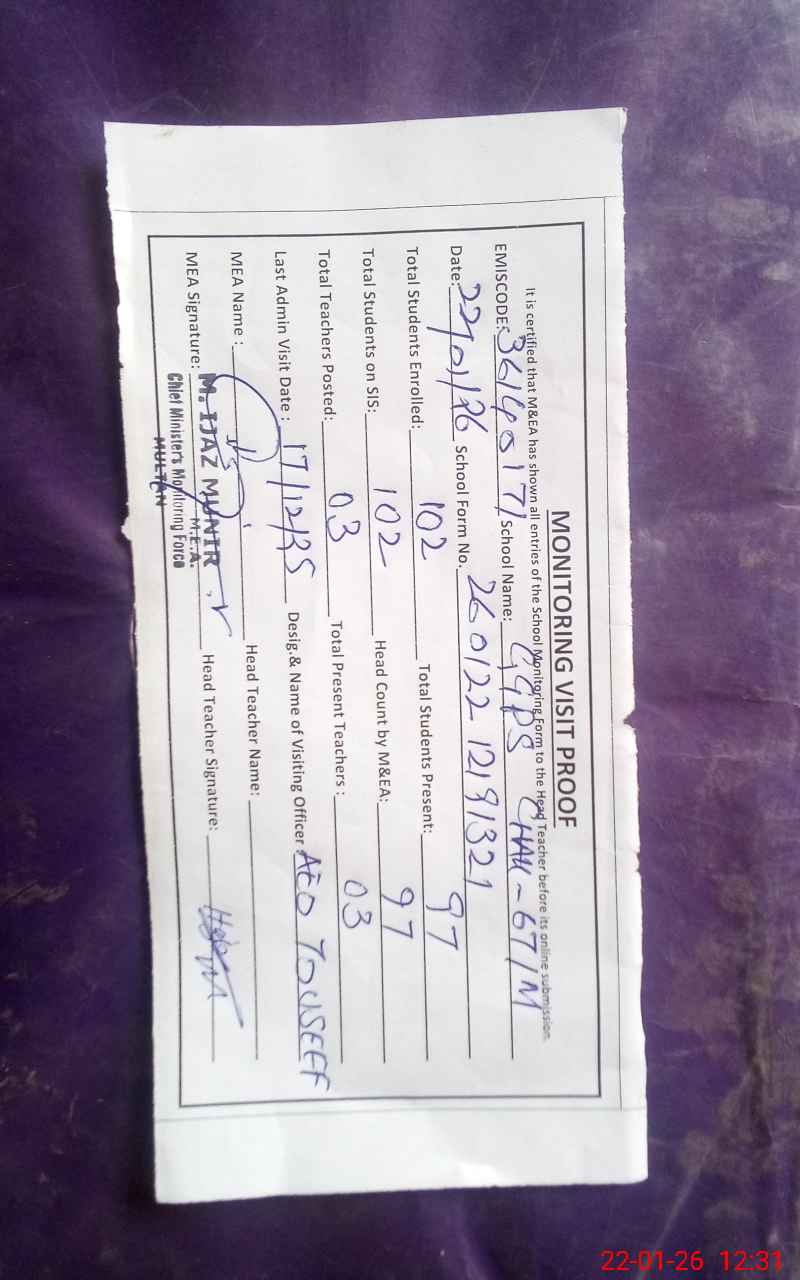 MONITORING VISIT PROOF
It is certified that M&EA has shown all entries of the School Monitoring Form to the Head Teacher before its online submission.
EMISCODE: 36140171 School Name: GGPS CHAK-6T/M
Date: 22/01/26 School Form No. 260122 12191321
Total Students Enrolled: 102 Total Students Present: 97
Total Students on SIS: 102 Head Count by M&EA: 97
Total Teachers Posted: 03 Total Present Teachers : 03
Last Admin Visit Date : 17/12/25 Desig.& Name of Visiting Officer AEO TOUSEEF
MEA Name : Head Teacher Name:
MEA Signature: Head Teacher Signature:
M. IJAZ MUNIR
M.E.A.
Chief Minister's Monitoring Force
MULTAN
22-01-26 12:31